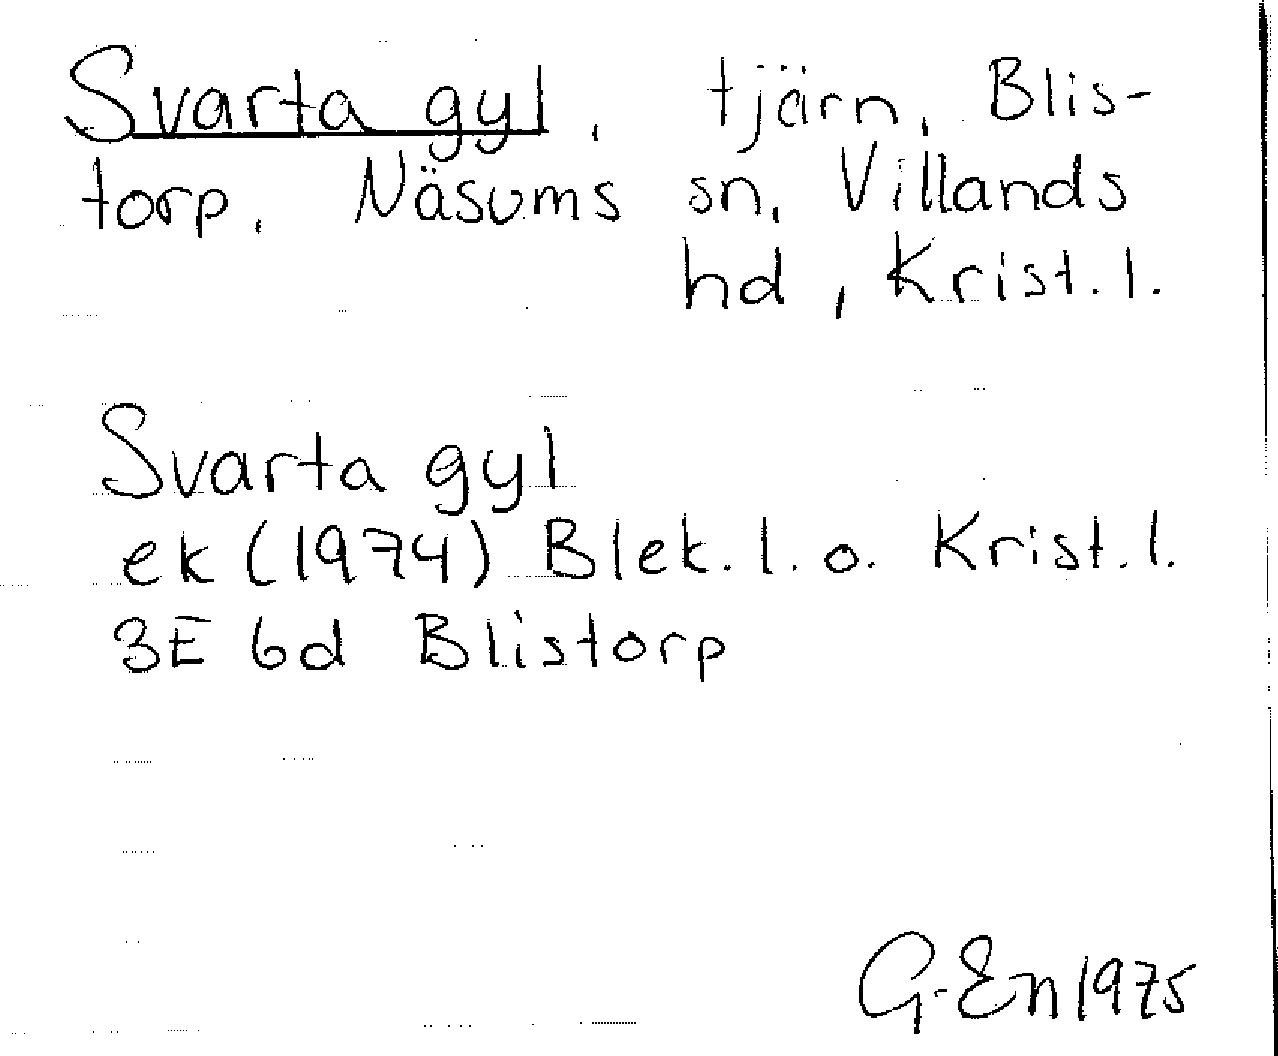 Svarta gyl, tjärn, Blis-
torp, Näsums sn, Villands
hd, Krist. l.
Svarta gyl
ek (1974) Blek. l. o. Krist. l.
3E 6d Blistorp
G. En 1975